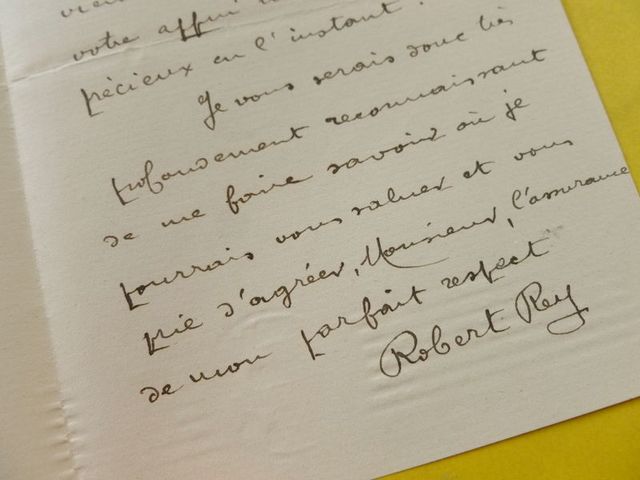 votre appui
précieux en l'instant !
Je vous serais donc très
profondement reconnaissant
de me faire savoir où je
pourrais vous saluer et vous
prie d'agréer, Monsieur, l'assurance
de mon parfait respect
Robert Rey